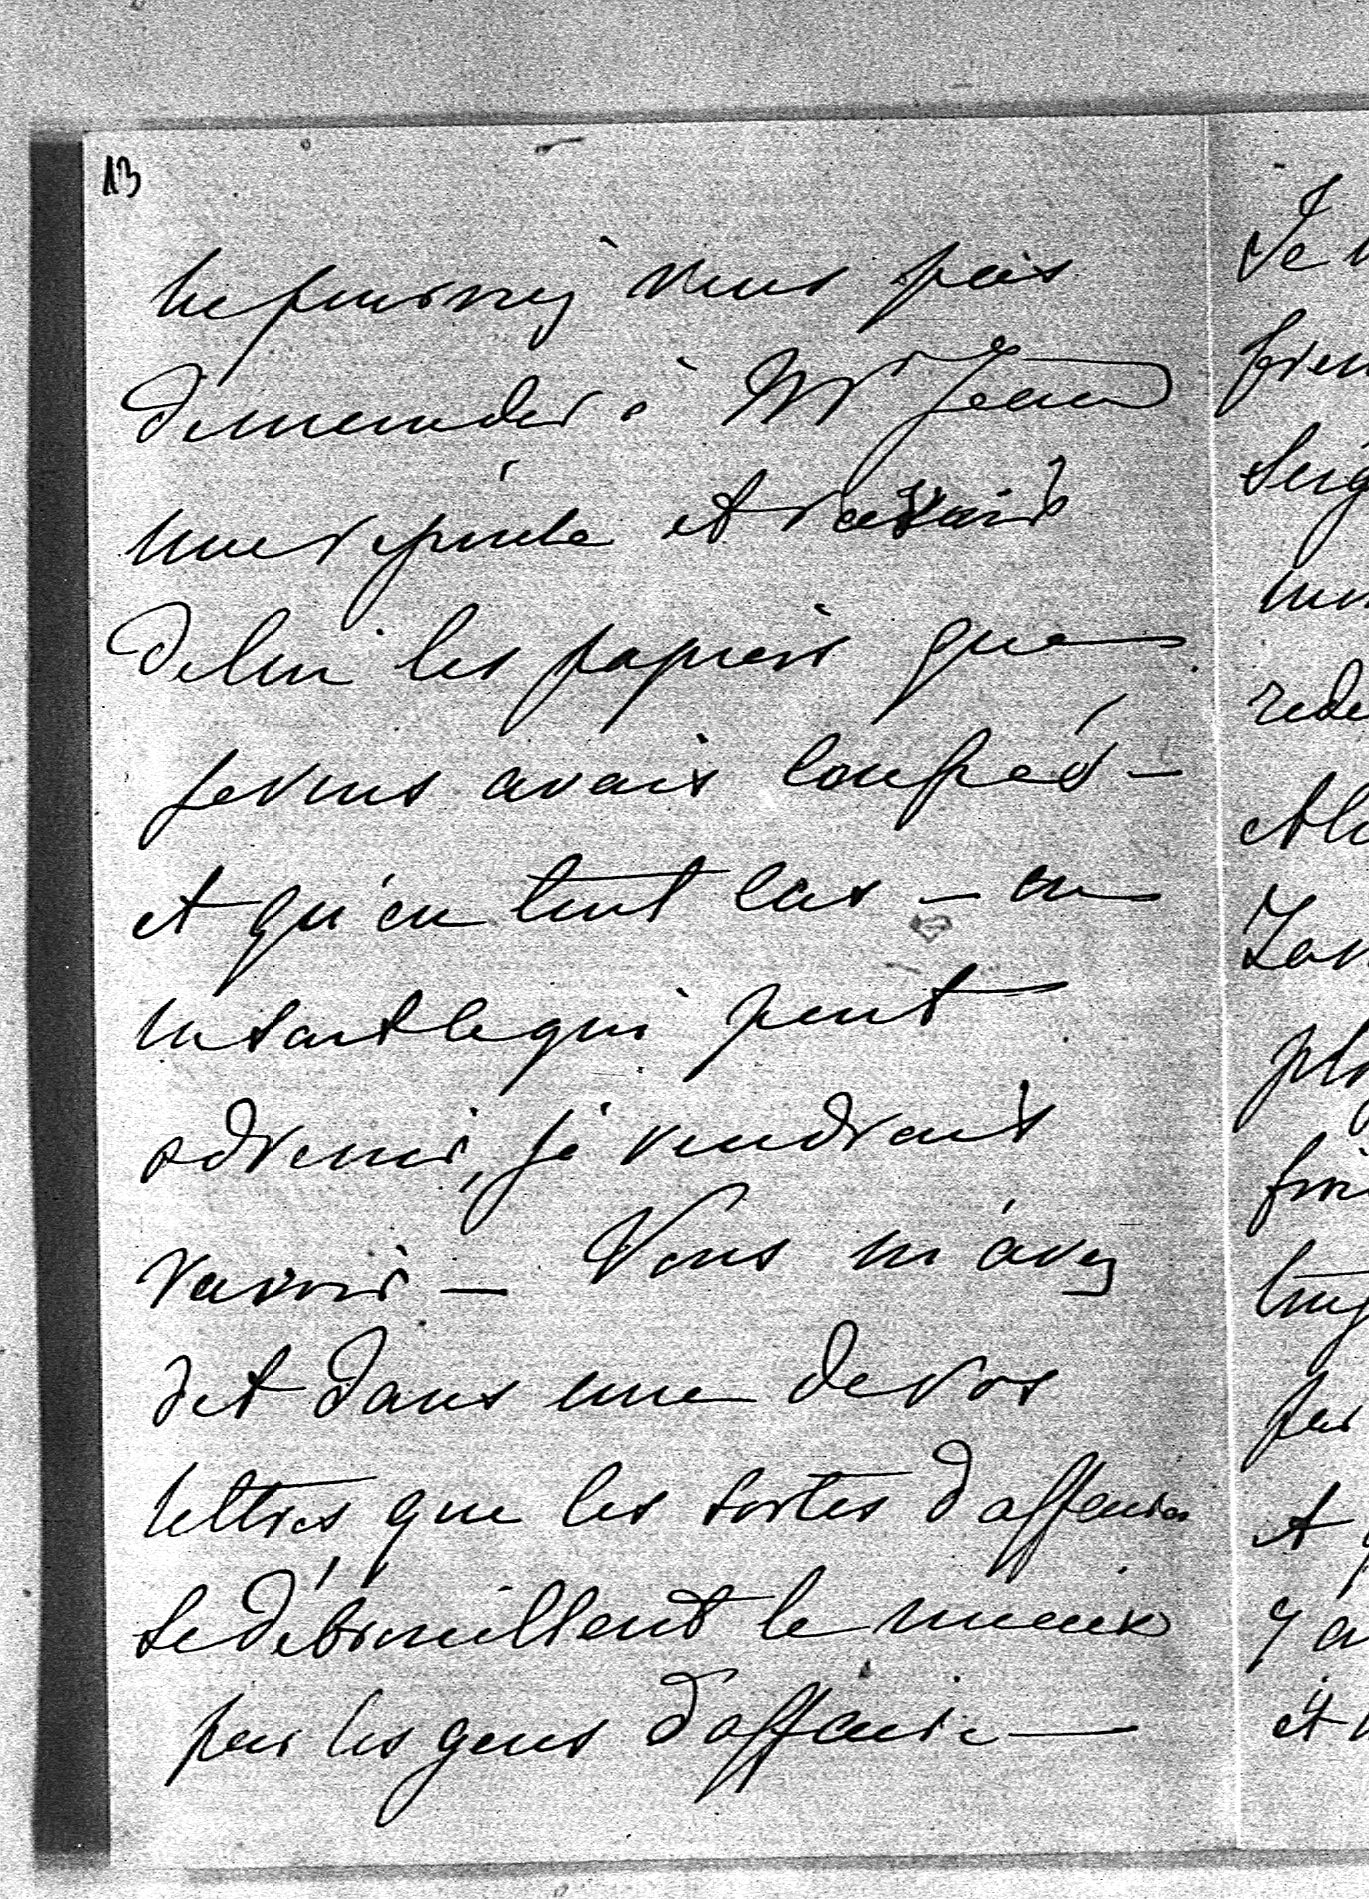 13
ne pourriez vous pas
demander à Mr Jean
une réponse et ravoir
de lui les papiers que
je vous avais confiés –
et qu'en tout cas – on
ne sait ce qui peut
advenir, je voudrais
ravoir – Vous m'avez
dit dans une de vos
lettres que les sortes d'affaires
se débrouillent le mieux
par les gens d'affaire –
Je